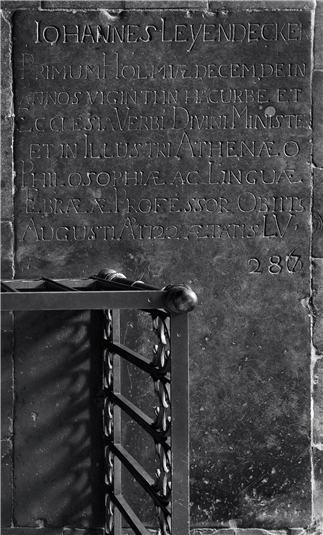 IOHANNES LEYENDECKER
PRIMUM HOLMIÆ DECEM DEIN
ANNOS VIGINTI IN HAC URBE ET
ECCLESIA VERBI DIVINI MINISTE
ET IN ILLUSTRI ATHENÆO
PHILOSOPHIÆ AC LINGUÆ
EBRÆÆ PROFESSOR OBIIT
AUGUSTI ÆTATIS LV